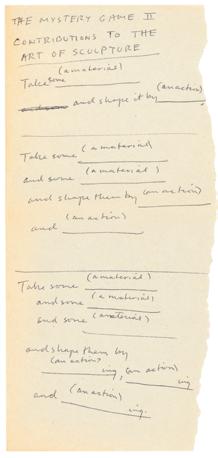 THE MYSTERY GAME II
CONTRIBUTIONS TO THE
ART OF SCULPTURE
(a material)
Take some
(an action)
and shape it by
(a material)
Take some
and some (a material)
and shape them by (an action)
(an action)
and
(a material)
Take some
and some (a material)
and some (a material)
and shape them by
(an action?
ing, (an action)
ing
and (an action)
ing.